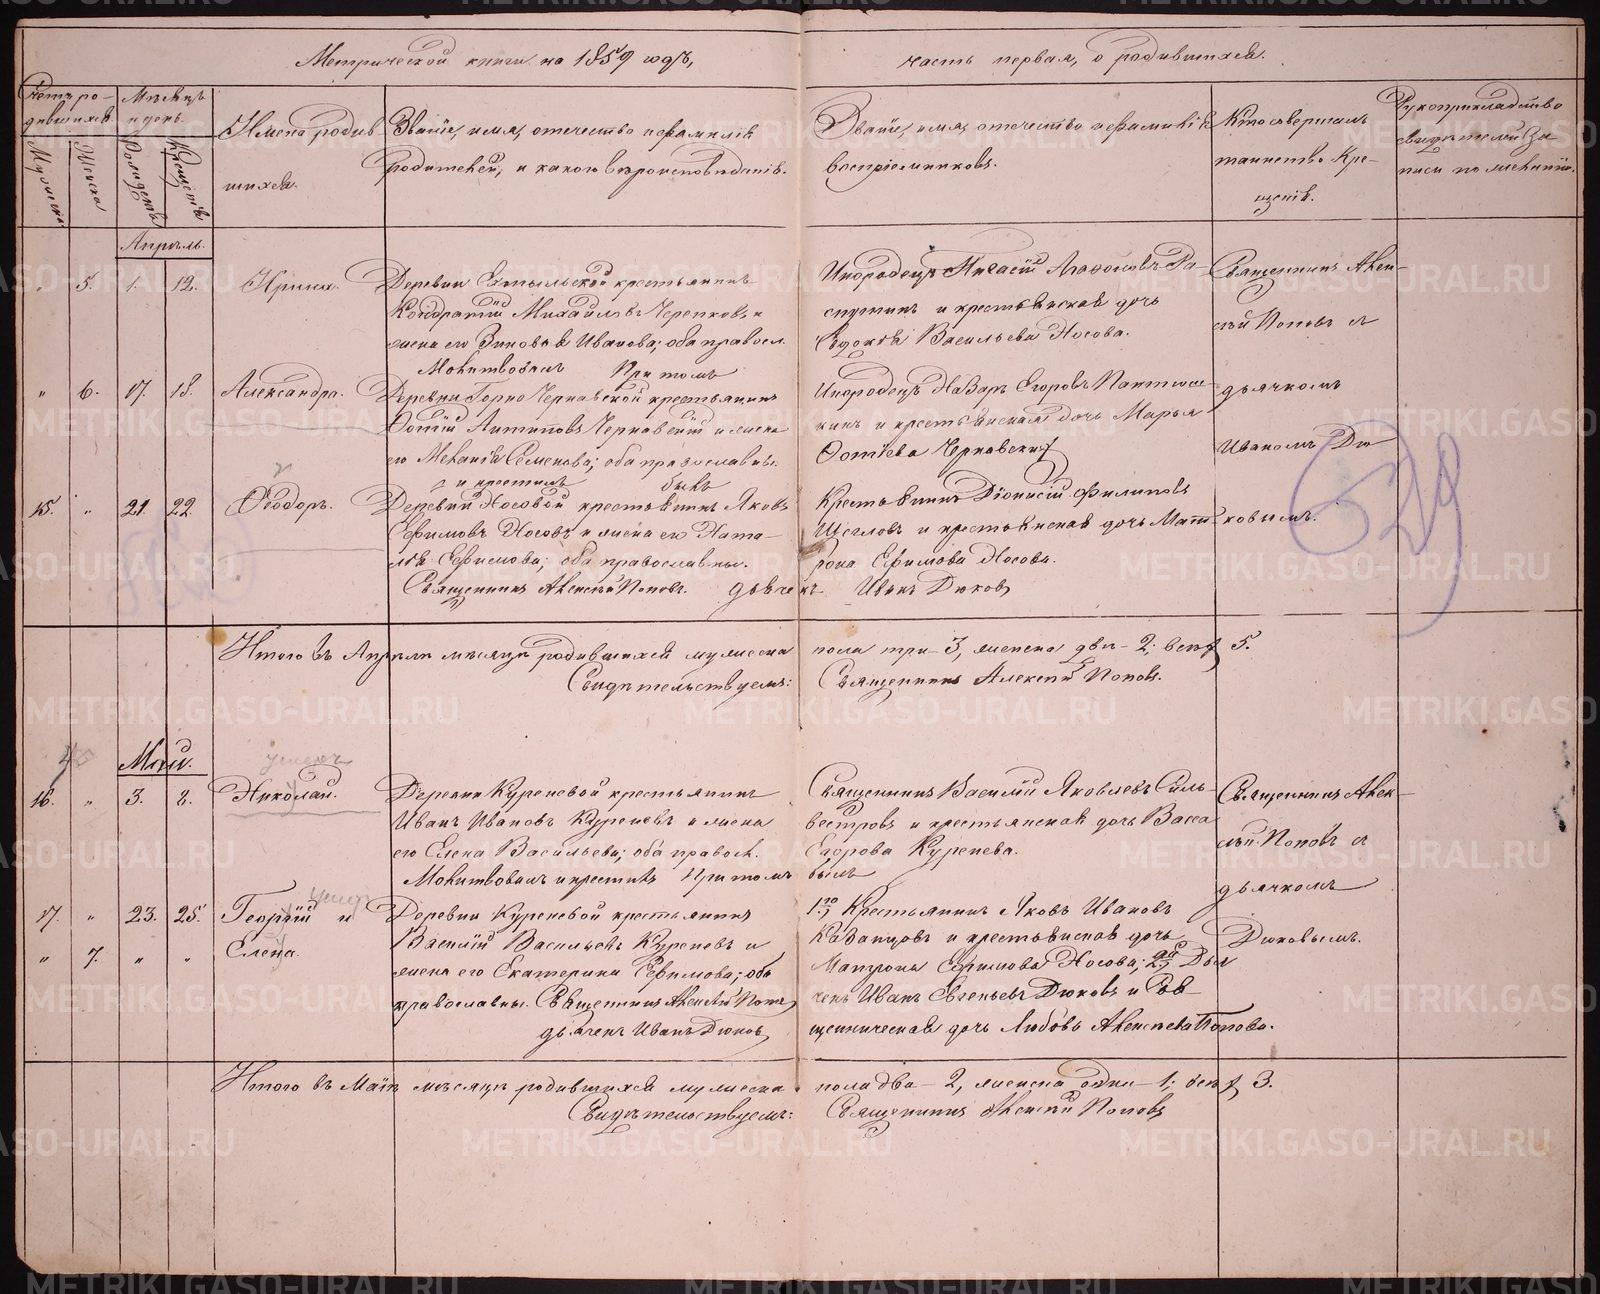 Метрической книги на 1859 годъ,
часть первая, о родившихся.
Счетъ родившихся.
Мѣсяцъ и день.
Мужеска
Женска
Рожденія
Крещенія
Имена родившихся.
Званіе, имя, отечество и фамилія
родителей, и какого вѣроисповѣданія.
Званіе, имя, отечество и фамилія
воспріемниковъ.
Кто совершалъ
таинство Кре-
щенія.
Рукоприкладство
свидѣтелей за-
писи по желанію.
Апрѣль.
" 5. 1. 12. Ирина.
Деревни крестьянинъ
Кондратій Михайловъ Черепковъ и
жена его Зиновія Иванова; оба правосл.
Молитвовалъ При томъ
Инородецъ Агафоновъ Ра-
спутинъ и крестьянская дочь
Евдокія Васильева Носова.
Священникъ Алек-
сѣй Поповъ съ
" 6. 17. 18. Александра.
Деревни Горно Чернавской крестьянинъ
Фотій Антиповъ Чернавскій и жена
его Меланія Семенова; оба православны.
и крестилъ былъ
Инородецъ Назаръ Егоровъ Пантюш-
кинъ и крестьянская дочь Марья
Фотіева Чернавскихъ
дьячкомъ
Иваномъ Дю-
15. " 21. 22. Ѳеодоръ.
Деревни Носовой крестьянинъ Яковъ
Ефимовъ Носовъ и жена его Ната-
лія Ефимова; оба православны.
Священникъ Алексѣй Поповъ. дьячекъ Иванъ Дюковъ
Крестьянинъ Діонисій Филиповъ
Щегловъ и крестьянская дочь Мат-
рона Ефимова Носова.
ковымъ.
529
Итого въ Апрѣлѣ мѣсяцѣ родившихся мужеска пола три – 3, женска двѣ – 2; всѣхъ 5.
Свидѣтельствуемъ: Священникъ Алексѣй Поповъ.
Май.
умеръ
16. " 3. 8. Николай.
Деревни Куреневой крестьянинъ
Иванъ Ивановъ Куреневъ и жена
его Елена Васильева; оба правосл.
Молитвовалъ и крестилъ При томъ былъ
Священникъ Василій Яковлевъ Силь-
вестровъ и крестьянская дочь Васса
Егорова Куренева.
Священникъ Алек-
сѣй Поповъ съ
дьячкомъ
Дюковымъ.
умер
17. " 23. 25. Георгій и
" 7. " " Елена.
Деревни Куреневой крестьянинъ
Василій Васильевъ Куреновъ и
жена его Екатерина Ефимова; оба
православны. Священникъ Алексѣй Поповъ
дьячекъ Иванъ Дюковъ
1го Крестьянинъ Яковъ Ивановъ
Казанцовъ и крестьянская дочь
Матрона Ефимова Носова; 2й Дья-
чекъ Иванъ Евгеньевъ Дюковъ и Свя-
щенническая дочь Любовь Алексѣева Попова.
Итого въ Маѣ мѣсяцѣ родившихся мужеска пола два – 2, женска одна – 1; всѣхъ 3.
Свидѣтельствуемъ: Священникъ Алексѣй Поповъ
METRIKI.GASO-URAL.RU